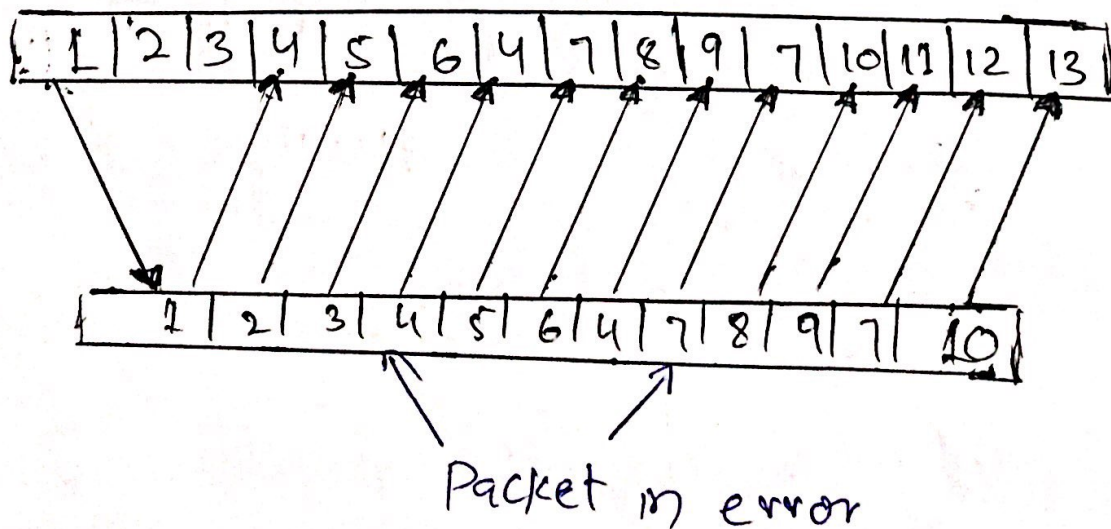 1 | 2 | 3 | 4 | 5 | 6 | 4 | 7 | 8 | 9 | 7 | 10 | 11 | 12 | 13
1 | 2 | 3 | 4 | 5 | 6 | 4 | 7 | 8 | 9 | 7 | 10
Packet in error